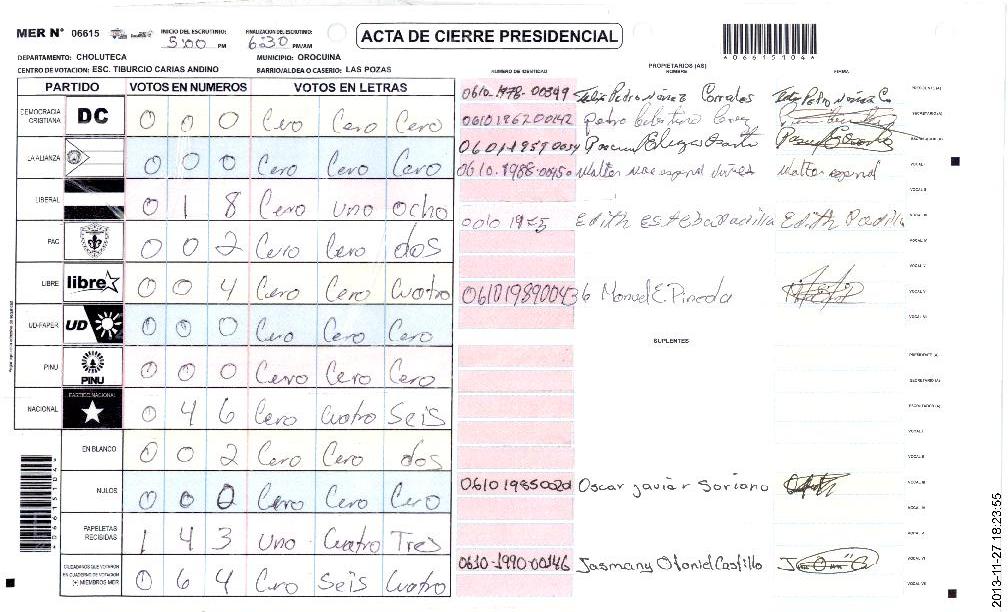 MER N° 06615
INICIO DEL ESCRUTINIO: 5:00 PM
FINALIZACION DEL ESCRUTINIO: 6:30 PM/AM
ACTA DE CIERRE PRESIDENCIAL
*06615104*
DEPARTAMENTO: CHOLUTECA
MUNICIPIO: OROCUINA
CENTRO DE VOTACION: ESC. TIBURCIO CARIAS ANDINO
BARRIO/ALDEA O CASERIO: LAS POZAS
PARTIDO VOTOS EN NUMEROS VOTOS EN LETRAS
DEMOCRACIA CRISTIANA DC 0 0 0 Cero Cero Cero
LA ALIANZA 0 0 0 Cero Cero Cero
LIBERAL 0 1 8 Cero uno ocho
PAC 0 0 2 Cero Cero dos
LIBRE libre 0 0 4 Cero Cero Cuatro
UD-FAPER UD 0 0 0 Cero Cero Cero
PINU PINU 0 0 0 Cero Cero Cero
NACIONAL PARTIDO NACIONAL 0 4 6 Cero Cuatro Seis
EN BLANCO 0 0 2 Cero Cero dos
NULOS 0 0 0 Cero Cero Cero
PAPELETAS RECIBIDAS 1 4 3 Uno Cuatro Tres
CIUDADANOS QUE VOTARON EN CUADERNO DE VOTACION (+) MIEMBROS MER 0 6 4 Cero Seis Cuatro
*06615104*
PROPIETARIOS (AS)
NUMERO DE IDENTIDAD NOMBRE FIRMA
0610-1978-00349 Felix Pedro Núñez Corrales PRESIDENTE (A)
Pedro SECRETARIO (A)
0610-1988-00450 Walter Walter espinal VOCAL I
0610 1975 Edith Edith Padilla
0610198900436 Manuel E. Pineda VOCAL V
VOCAL VI
SUPLENTES
PRESIDENTE (A)
SECRETARIO (A)
ESCRUTADOR (A)
VOCAL I
VOCAL II
0610 1985 0020 Oscar javier Soriano VOCAL III
0610-1990-00146 Jasmany Otoniel Castillo VOCAL VI
VOCAL VII
2013-11-27 18:23:55